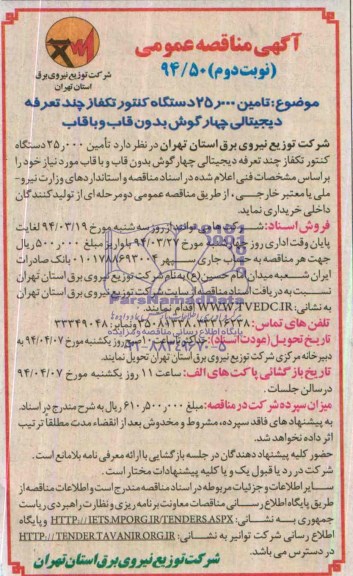 آگهی مناقصه عمومی
(نوبت دوم) ۹۴/۵۰
شرکت توزیع نیروی برق
استان تهران
موضوع: تامین ۲۵٫۰۰۰ دستگاه کنتور تکفاز چند تعرفه
دیجیتالی چهار گوش بدون قاب و با قاب
شرکت توزیع نیروی برق استان تهران در نظر دارد تأمین ۲۵٫۰۰۰ دستگاه
کنتور تکفاز چند تعرفه دیجیتالی چهار گوش بدون قاب و با قاب مورد نیاز خود را
براساس مشخصات فنی اعلام شده در اسناد مناقصه و استانداردهای وزارت نیرو-
ملی یا معتبر خارجی، از طریق مناقصه عمومی دو مرحله ای از تولیدکنندگان
داخلی خریداری نماید.
فروش اسناد: شرکت ها می توانند از روز سه شنبه مورخ ۹۴/۰۳/۱۹ لغایت
پایان وقت اداری روز چهارشنبه مورخ ۹۴/۰۳/۲۷ با واریز مبلغ ۵۰۰٫۰۰۰ ریال
جهت هر مناقصه به حساب جاری سپهر ۰۱۰۱۷۸۸۶۹۳۰۰۴ بانک صادرات
ایران شعبه میدان امام حسین (ع) به نام شرکت توزیع نیروی برق استان تهران
نسبت به دریافت اسناد مناقصه از سایت شرکت توزیع نیروی برق استان تهران
به نشانی: WWW.TVEDC.IR اقدام نمایند.
تلفن های تماس: ۳۳۳۱۶۳۳۸، ۳۵۰۸۱۳۳۸ و نمابر: ۳۳۳۴۹۰۴۸
تاریخ تحویل (عودت اسناد): حداکثر تا ساعت ۱۰ صبح روز یکشنبه مورخ ۹۴/۰۴/۰۷ به
دبیرخانه مرکزی شرکت توزیع نیروی برق استان تهران تحویل نمایند.
تاریخ بازگشائی پاکت های الف: ساعت ۱۱ روز یکشنبه مورخ ۹۴/۰۴/۰۷
در سالن جلسات.
میزان سپرده شرکت در مناقصه: مبلغ ۶۱۰٫۵۰۰٫۰۰۰ ریال به شرح مندرج در اسناد.
به پیشنهادهای فاقد سپرده، مشروط و مخدوش بعد از انقضاء مدت مطلقاً ترتیب
اثر داده نخواهد شد.
حضور کلیه پیشنهاد دهندگان در جلسه بازگشایی با ارائه معرفی نامه بلامانع است.
شرکت در رد یا قبول یک و یا کلیه پیشنهادات مختار است.
سایر اطلاعات و جزئیات مربوطه در اسناد مناقصه مندرج است و اطلاعات مناقصه از
طریق پایگاه اطلاع رسانی مناقصات معاونت برنامه ریزی و نظارت راهبردی ریاست
جمهوری به نشانی: HTTP://IETS.MPORG.IR/TENDERS.ASPX و پایگاه
اطلاع رسانی شرکت توانیر به نشانی: HTTP://TENDER.TAVANIR.ORG.IR
در دسترس می باشد.
شرکت توزیع نیروی برق استان تهران
ParsNamadData
پایگاه اطلاع رسانی مناقصه و مزایده
۰۲۱-۸۸۳۴۹۶۷۰-۵